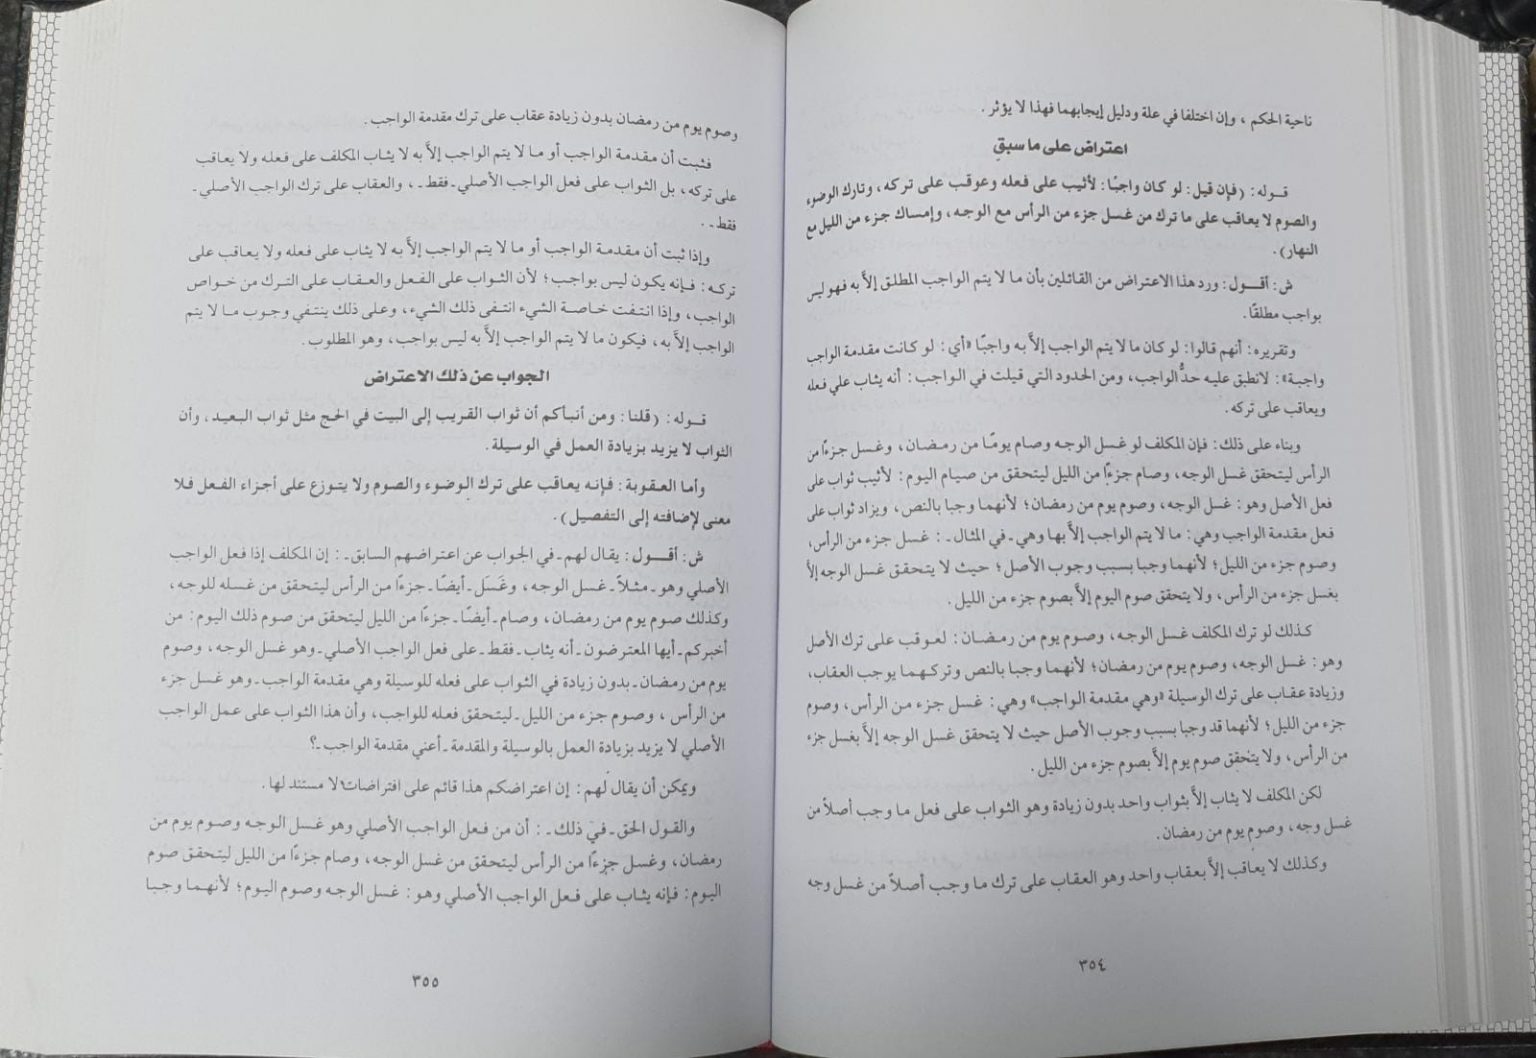 ناحية الحكم ، وإن اختلفا في علة ودليل إيجابهما فهذا لا يؤثر .
اعتراض على ما سبق
قوله : (فإن قيل : لو كان واجبًا : لأثيب على فعله وعوقب على تركه، وتارك الوضوء
والصوم لا يعاقب على ما ترك من غسل جزء من الرأس مع الوجه، وإمساك جزء من الليل مع
النهار) .
ش : أقول : ورد هذا الاعتراض من القائلين بأن ما لا يتم الواجب المطلق إلاَّ به فهو ليس
بواجب مطلقًا.
وتقريره : أنهم قالوا : لو كان ما لا يتم الواجب إلاَّ به واجبًا «أي : لو كانت مقدمة الواجب
واجبة» : لانطبق عليه حدُّ الواجب، ومن الحدود التي قيلت في الواجب : أنه يثاب علي فعله
ويعاقب على تركه .
وبناء على ذلك : فإن المكلف لو غسل الوجه وصام يومًا من رمضان، وغسل جزءًا من
الرأس ليتحقق غسل الوجه، وصام جزءًا من الليل ليتحقق من صيام اليوم : لأثيب ثواب على
فعل الأصل وهو : غسل الوجه، وصوم يوم من رمضان؛ لأنهما وجبا بالنص، ويزاد ثواب على
فعل مقدمة الواجب وهي : ما لا يتم الواجب إلاَّ بها وهي ـ في المثال ـ : غسل جزء من الرأس،
وصوم جزء من الليل؛ لأنهما وجبا بسبب وجوب الأصل؛ حيث لا يتحقق غسل الوجه إلاَّ
بغسل جزء من الرأس، ولا يتحقق صوم اليوم إلاَّ بصوم جزء من الليل .
كذلك لو ترك المكلف غسل الوجه، وصوم يوم من رمضان : لعوقب على ترك الأصل
وهو : غسل الوجه، وصوم يوم من رمضان؛ لأنهما وجبا بالنص وتركهما يوجب العقاب،
وزيادة عقاب على ترك الوسيلة «وهي مقدمة الواجب» وهي : غسل جزء من الرأس، وصوم
جزء من الليل؛ لأنهما قد وجبا بسبب وجوب الأصل حيث لا يتحقق غسل الوجه إلاَّ بغسل جزء
من الرأس، ولا يتحقق صوم يوم إلاَّ بصوم جزء من الليل .
لكن المكلف لا يثاب إلاَّ بثواب واحد بدون زيادة وهو الثواب على فعل ما وجب أصلاً من
غسل وجه، وصوم يوم من رمضان.
وكذلك لا يعاقب إلاَّ بعقاب واحد وهو العقاب على ترك ما وجب أصلاً من غسل وجه
٣٥٤
وصوم يوم من رمضان بدون زيادة عقاب على ترك مقدمة الواجب .
فثبت أن مقدمة الواجب أو ما لا يتم الواجب إلاَّ به لا يثاب المكلف على فعله ولا يعاقب
على تركه، بل الثواب على فعل الواجب الأصلي ـ فقط ـ ، والعقاب على ترك الواجب الأصلي ـ
فقط ـ .
وإذا ثبت أن مقدمة الواجب أو ما لا يتم الواجب إلاَّ به لا يثاب على فعله ولا يعاقب على
تركه : فإنه يكون ليس بواجب؛ لأن الثواب على الفعل والعقاب على الترك من خواص
الواجب، وإذا انتفت خاصة الشيء انتفى ذلك الشيء، وعلى ذلك ينتفي وجوب ما لا يتم
الواجب إلاَّ به، فيكون ما لا يتم الواجب إلاَّ به ليس بواجب، وهو المطلوب .
الجواب عن ذلك الاعتراض
قوله : (قلنا : ومن أنبأكم أن ثواب القريب إلى البيت في الحج مثل ثواب البعيد، وأن
الثواب لا يزيد بزيادة العمل في الوسيلة.
وأما العقوبة : فإنه يعاقب على ترك الوضوء والصوم ولا يتوزع على أجزاء الفعل فلا
معنى لإضافته إلى التفصيل) .
ش : أقول : يقال لهم ـ في الجواب عن اعتراضهم السابق ـ : إن المكلف إذا فعل الواجب
الأصلي وهو ـ مثلاً ـ غسل الوجه، وغَسَل ـ أيضًا ـ جزءًا من الرأس ليتحقق من غسله للوجه،
وكذلك صوم يوم من رمضان، وصام ـ أيضًا ـ جزءًا من الليل ليتحقق من صوم ذلك اليوم : من
أخبركم ـ أيها المعترضون ـ أنه يثاب ـ فقط ـ على فعل الواجب الأصلي ـ وهو غسل الوجه، وصوم
يوم من رمضان ـ بدون زيادة في الثواب على فعله للوسيلة وهي مقدمة الواجب ـ وهو غسل جزء
من الرأس ، وصوم جزء من الليل ـ ليتحقق فعله للواجب، وأن هذا الثواب على عمل الواجب
الأصلي لا يزيد بزيادة العمل بالوسيلة والمقدمة ـ أعني مقدمة الواجب ـ؟
ويمكن أن يقال لهم : إن اعتراضكم هذا قائم على افتراضات لا مستند لها .
والقول الحق ـ في ذلك ـ : أن من فعل الواجب الأصلي وهو غسل الوجه وصوم يوم من
رمضان، وغسل جزءًا من الرأس ليتحقق من غسل الوجه، وصام جزءًا من الليل ليتحقق صوم
اليوم : فإنه يثاب على فعل الواجب الأصلي وهو : غسل الوجه وصوم اليوم؛ لأنهما وجبا
٣٥٥